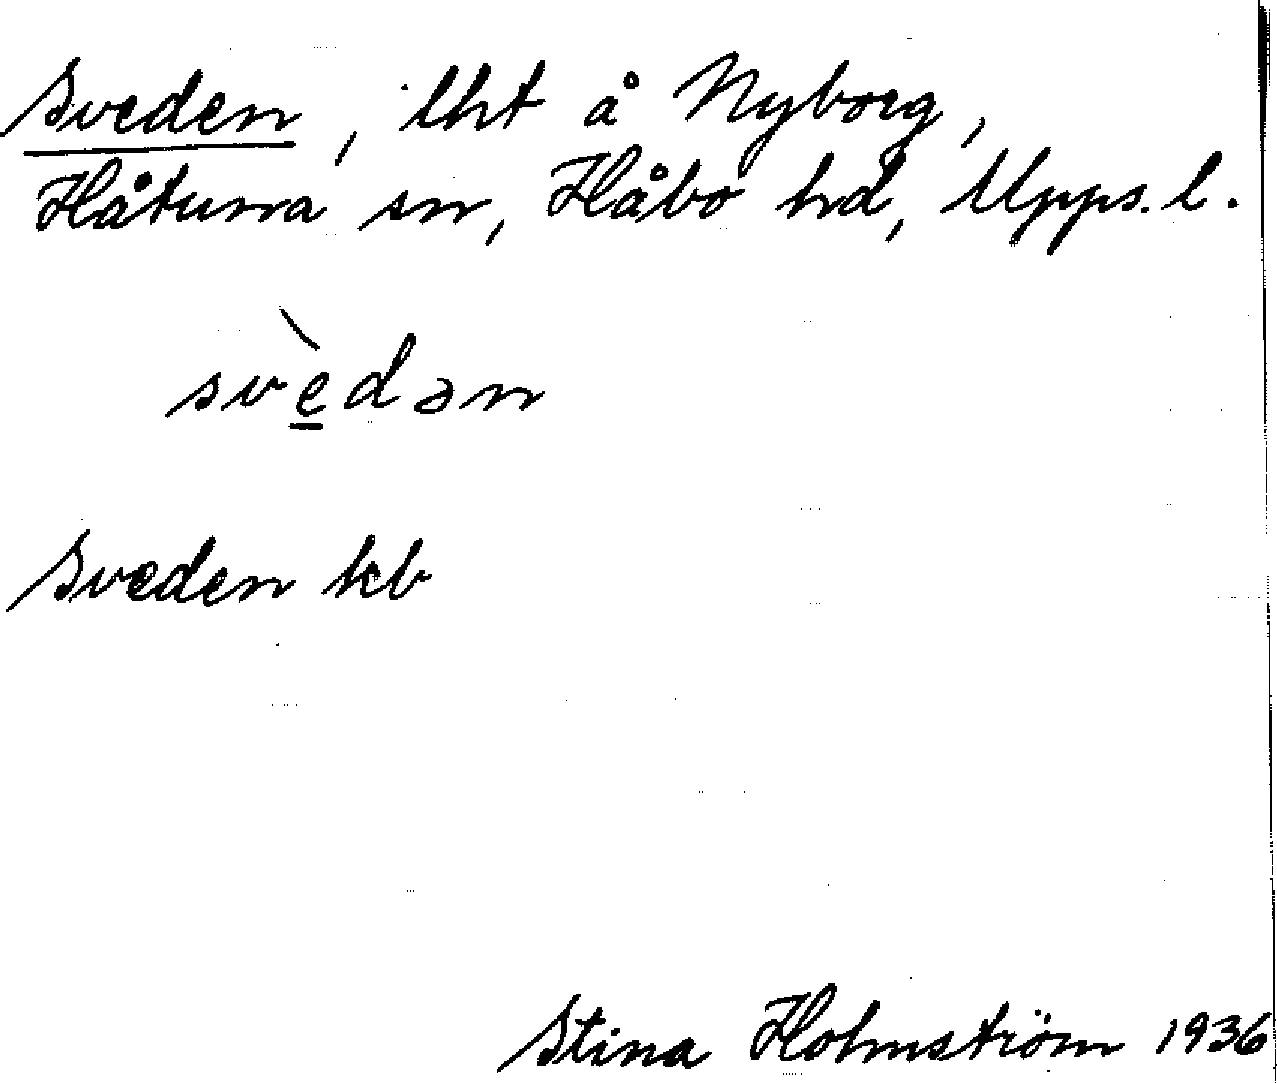 Sveden, lht å Nyborg,
Håtuna sn, Håbo hd, Upps. l.
svè̱dən
Sveden kb
Stina Holmström 1936